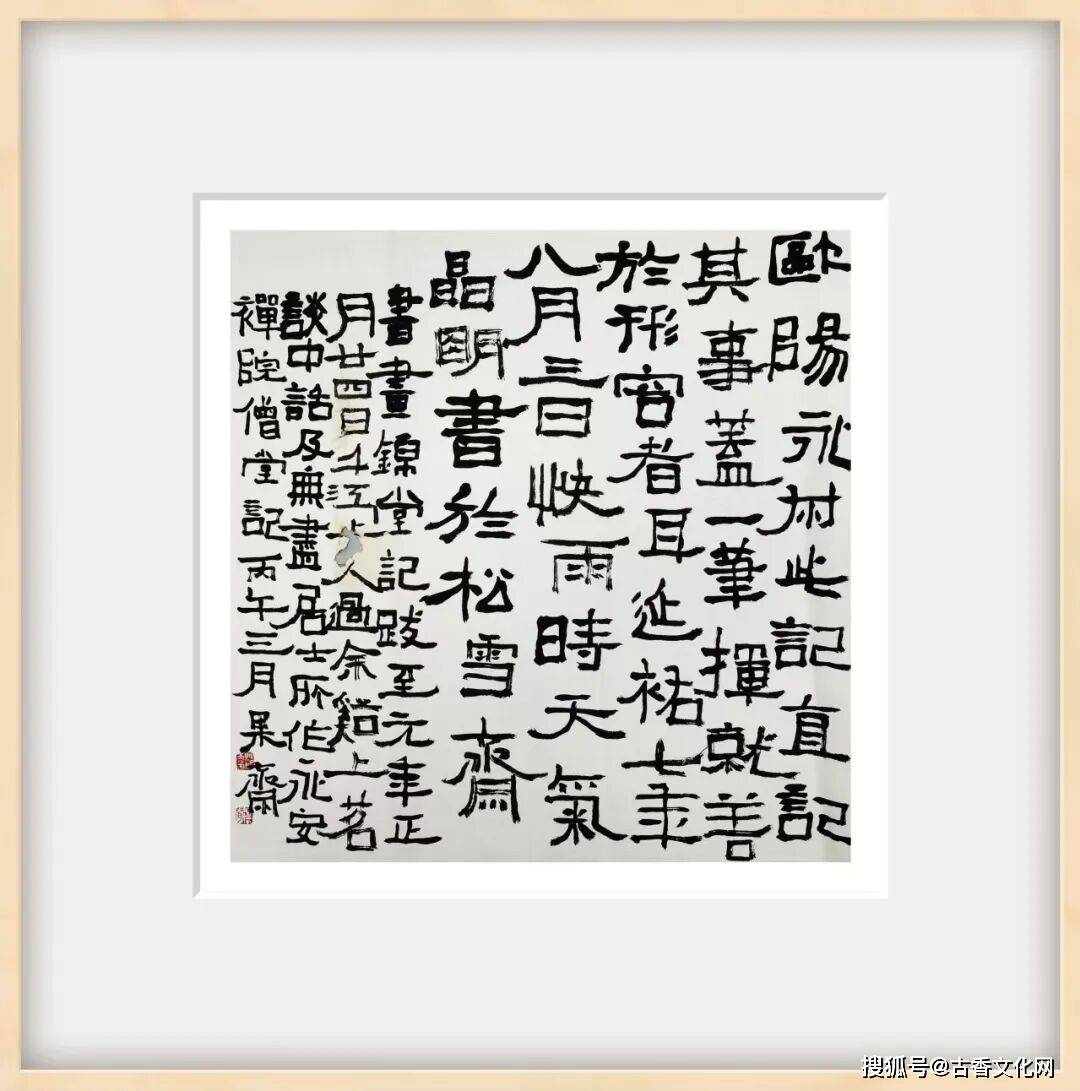 歐陽永叔此記直記
其事蓋一筆揮就善
於形容者耳延祐七年
八月三日快雨時天氣
晶明書於松雪齋
書晝錦堂記跋至元年正
月廿四日千江上人過余谿上茗
談中話及無盡居士所作永安
禪院僧堂記丙午三月果齋
搜狐号@古香文化网